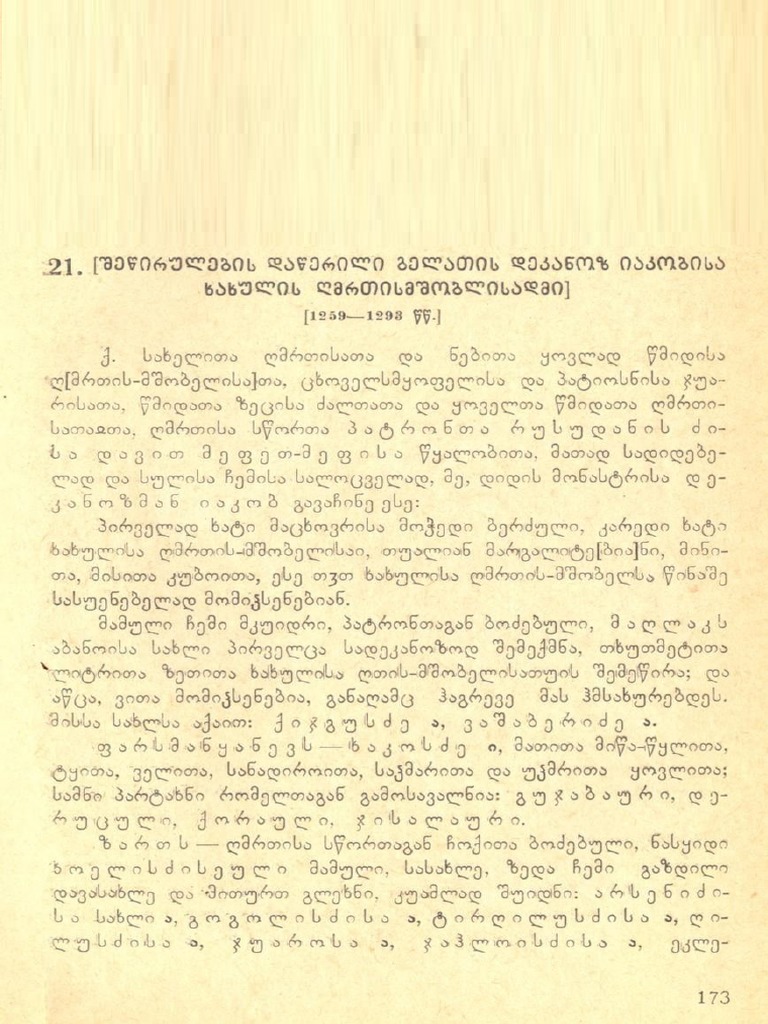 21. [შეწირულების დაწერილი გელათის დეკანოზ იაკობისა
ხახულის ღმრთისმშობლისადმი]
[1259—1293 წწ.]
ქ. სახელითა ღმრთისათა და ნებითა ყოვლად წმიდისა
ღ[მრთის-მშობელისა]თა, ცხოველსმყოფელისა და პატიოსნისა ჯუა-
რისათა, წმიდათა ზეცისა ძალთათა და ყოველთა წმიდათა ღმრთი-
სათათა, ღმრთისა სწორთა პატრონთა რუსუდანის ძი-
სა დავით მეფეთ-მეფისა წყალობითა, მათად სადიდებე-
ლად და სულისა ჩემისა სალოცველად, მე, დიდის მონასტრისა დე-
კანოზმან იაკობ გავაჩინე ესე:
პირველად ხატი მაცხოვრისა მოჭედი ბერძული, კარედი ხატი
ხახულისა ღმრთის-მშობელისაი, თუალიან მარგალიტე[ბია]ნი, მინი-
თა, მისითა კუბოითა, ესე თჳთ ხახულისა ღმრთის-მშობელსა წინაშე
სასუენებელად მომიჴსენებიან.
მამული ჩემი მკუიდრი, პატრონთაგან ბოძებული, მაღლაკს
აბანოისა სახლი პირველცა სადეკანოზოდ შემექმნა, თხუთმეტითა
ლიტრითა ზეთითა ხახულისა ღთის-მშობელისათუის შემეწირა; და
აწცა, ვითა მომიჴსენებია, განაღამც ჰაგრევე მას ჰმსახურებდეს.
მისსა სახლსა აქაით: ქიჯგუსძე ა, ვაშაბერიძე ა.
ფარსმანყანევს — ხაკოსძე ი, მათითა მიწა-წყლითა,
ტყითა, ველითა, სანადიროითა, საჴმარითა და უჴმრითა ყოვლითა;
სამნი პარტახნი რომელთაგან გამოსავალნია: გუჯაბაური, დე-
რუცული, ქორაული, ჯისალაური.
ზართს — ღმრთისა სწორთაგან ჩოქითა ბოძებული, ნასყიდი
ხოელისძისეული მამული, სასახლე, ზედა ჩემი გაზდილი
დავასახლე და მითურთ გლეხნი, კუამლად შუიდნი: არსენიძი-
სა სახლი ა, გოგოლისძისა ა, ტირღილუსძისა ა, ღი-
ლუსძისა ა, ჯუაროსა ა, ჯაჰლოისძისა ა, ეკლე-
173